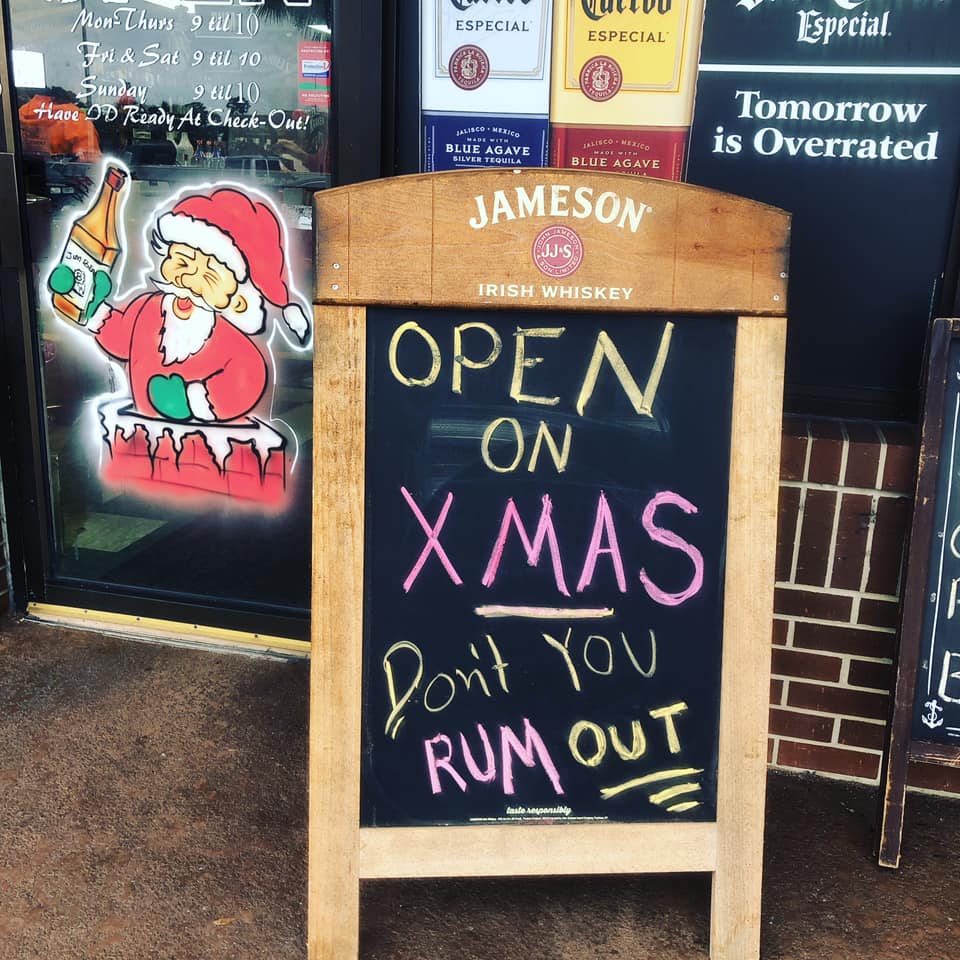 Mon-Thurs 9 til 10
Fri & Sat 9 til 10
Sunday 9 til 10
Have ID Ready At Check-Out!
ESPECIAL
JALISCO • MEXICO
MADE WITH
BLUE AGAVE
SILVER TEQUILA
Cuervo
ESPECIAL
JALISCO • MEXICO
MADE WITH
BLUE AGAVE
Especial.
Tomorrow
is Overrated
JAMESON
JOHN JAMESON
JJ&S
& SON LIMITED
IRISH WHISKEY
OPEN
ON
XMAS
Don't YOU
RUM OUT
taste responsibly